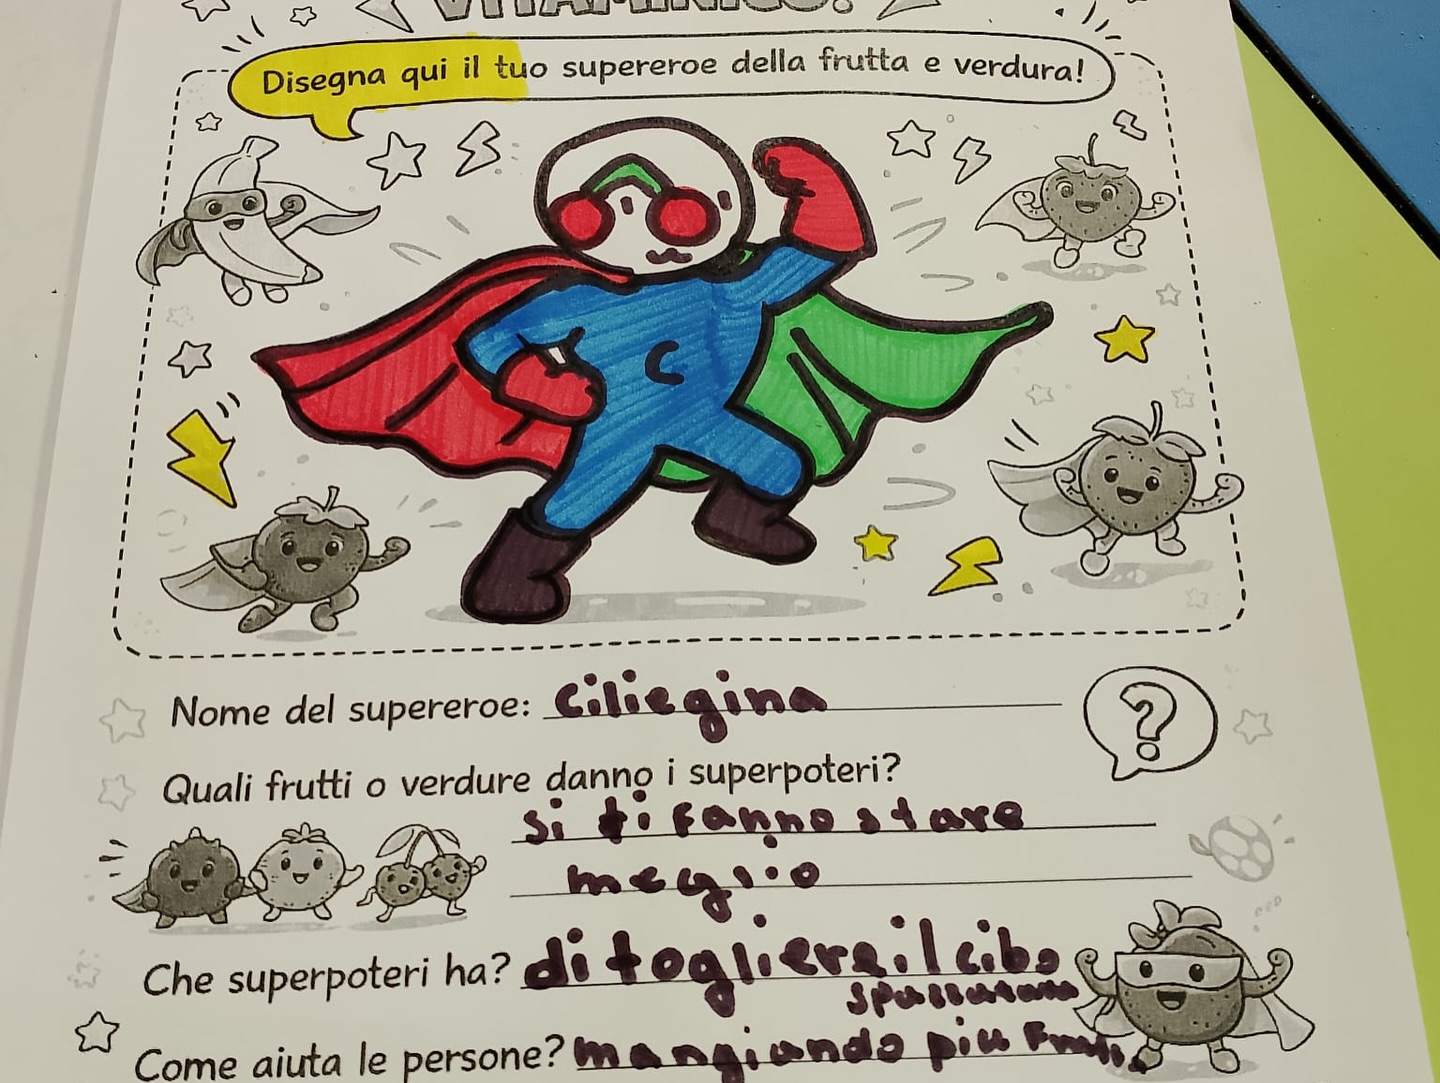 VITAMINICO!
Disegna qui il tuo supereroe della frutta e verdura!
C
Nome del supereroe: Ciliegina
?
Quali frutti o verdure danno i superpoteri?
si ti fanno stare
meglio
Che superpoteri ha? di togliere il cibo
Come aiuta le persone? mangiando più